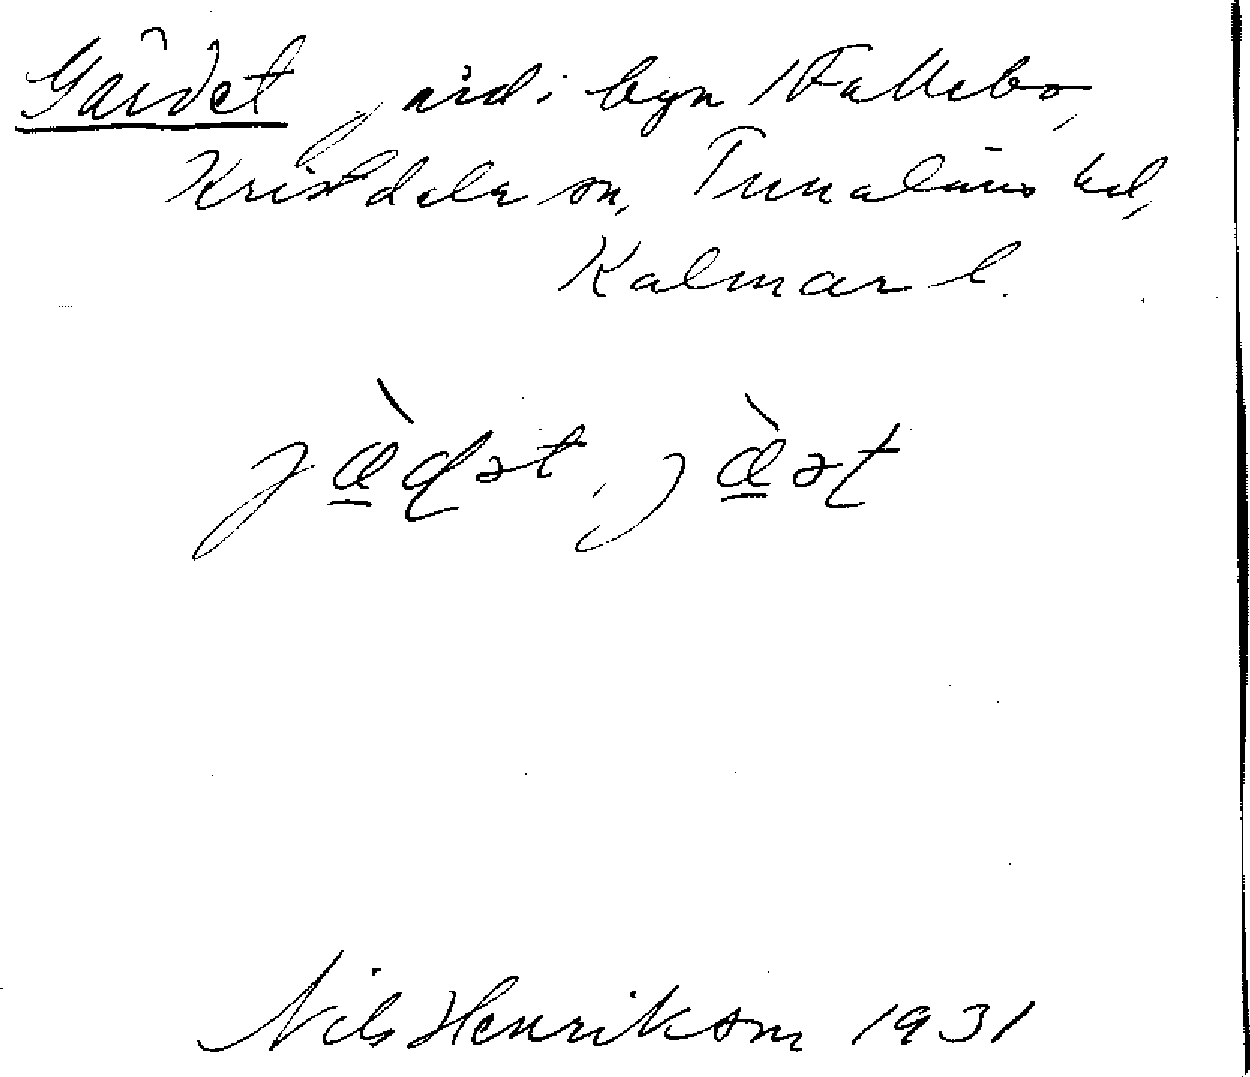 Gärdet gård i byn Fallebo,
Kristdala sn, Tunaläns hd,
Kalmar l.
jæ̀ḍət, jæ̀əṭ
Nils Henrikson 1931